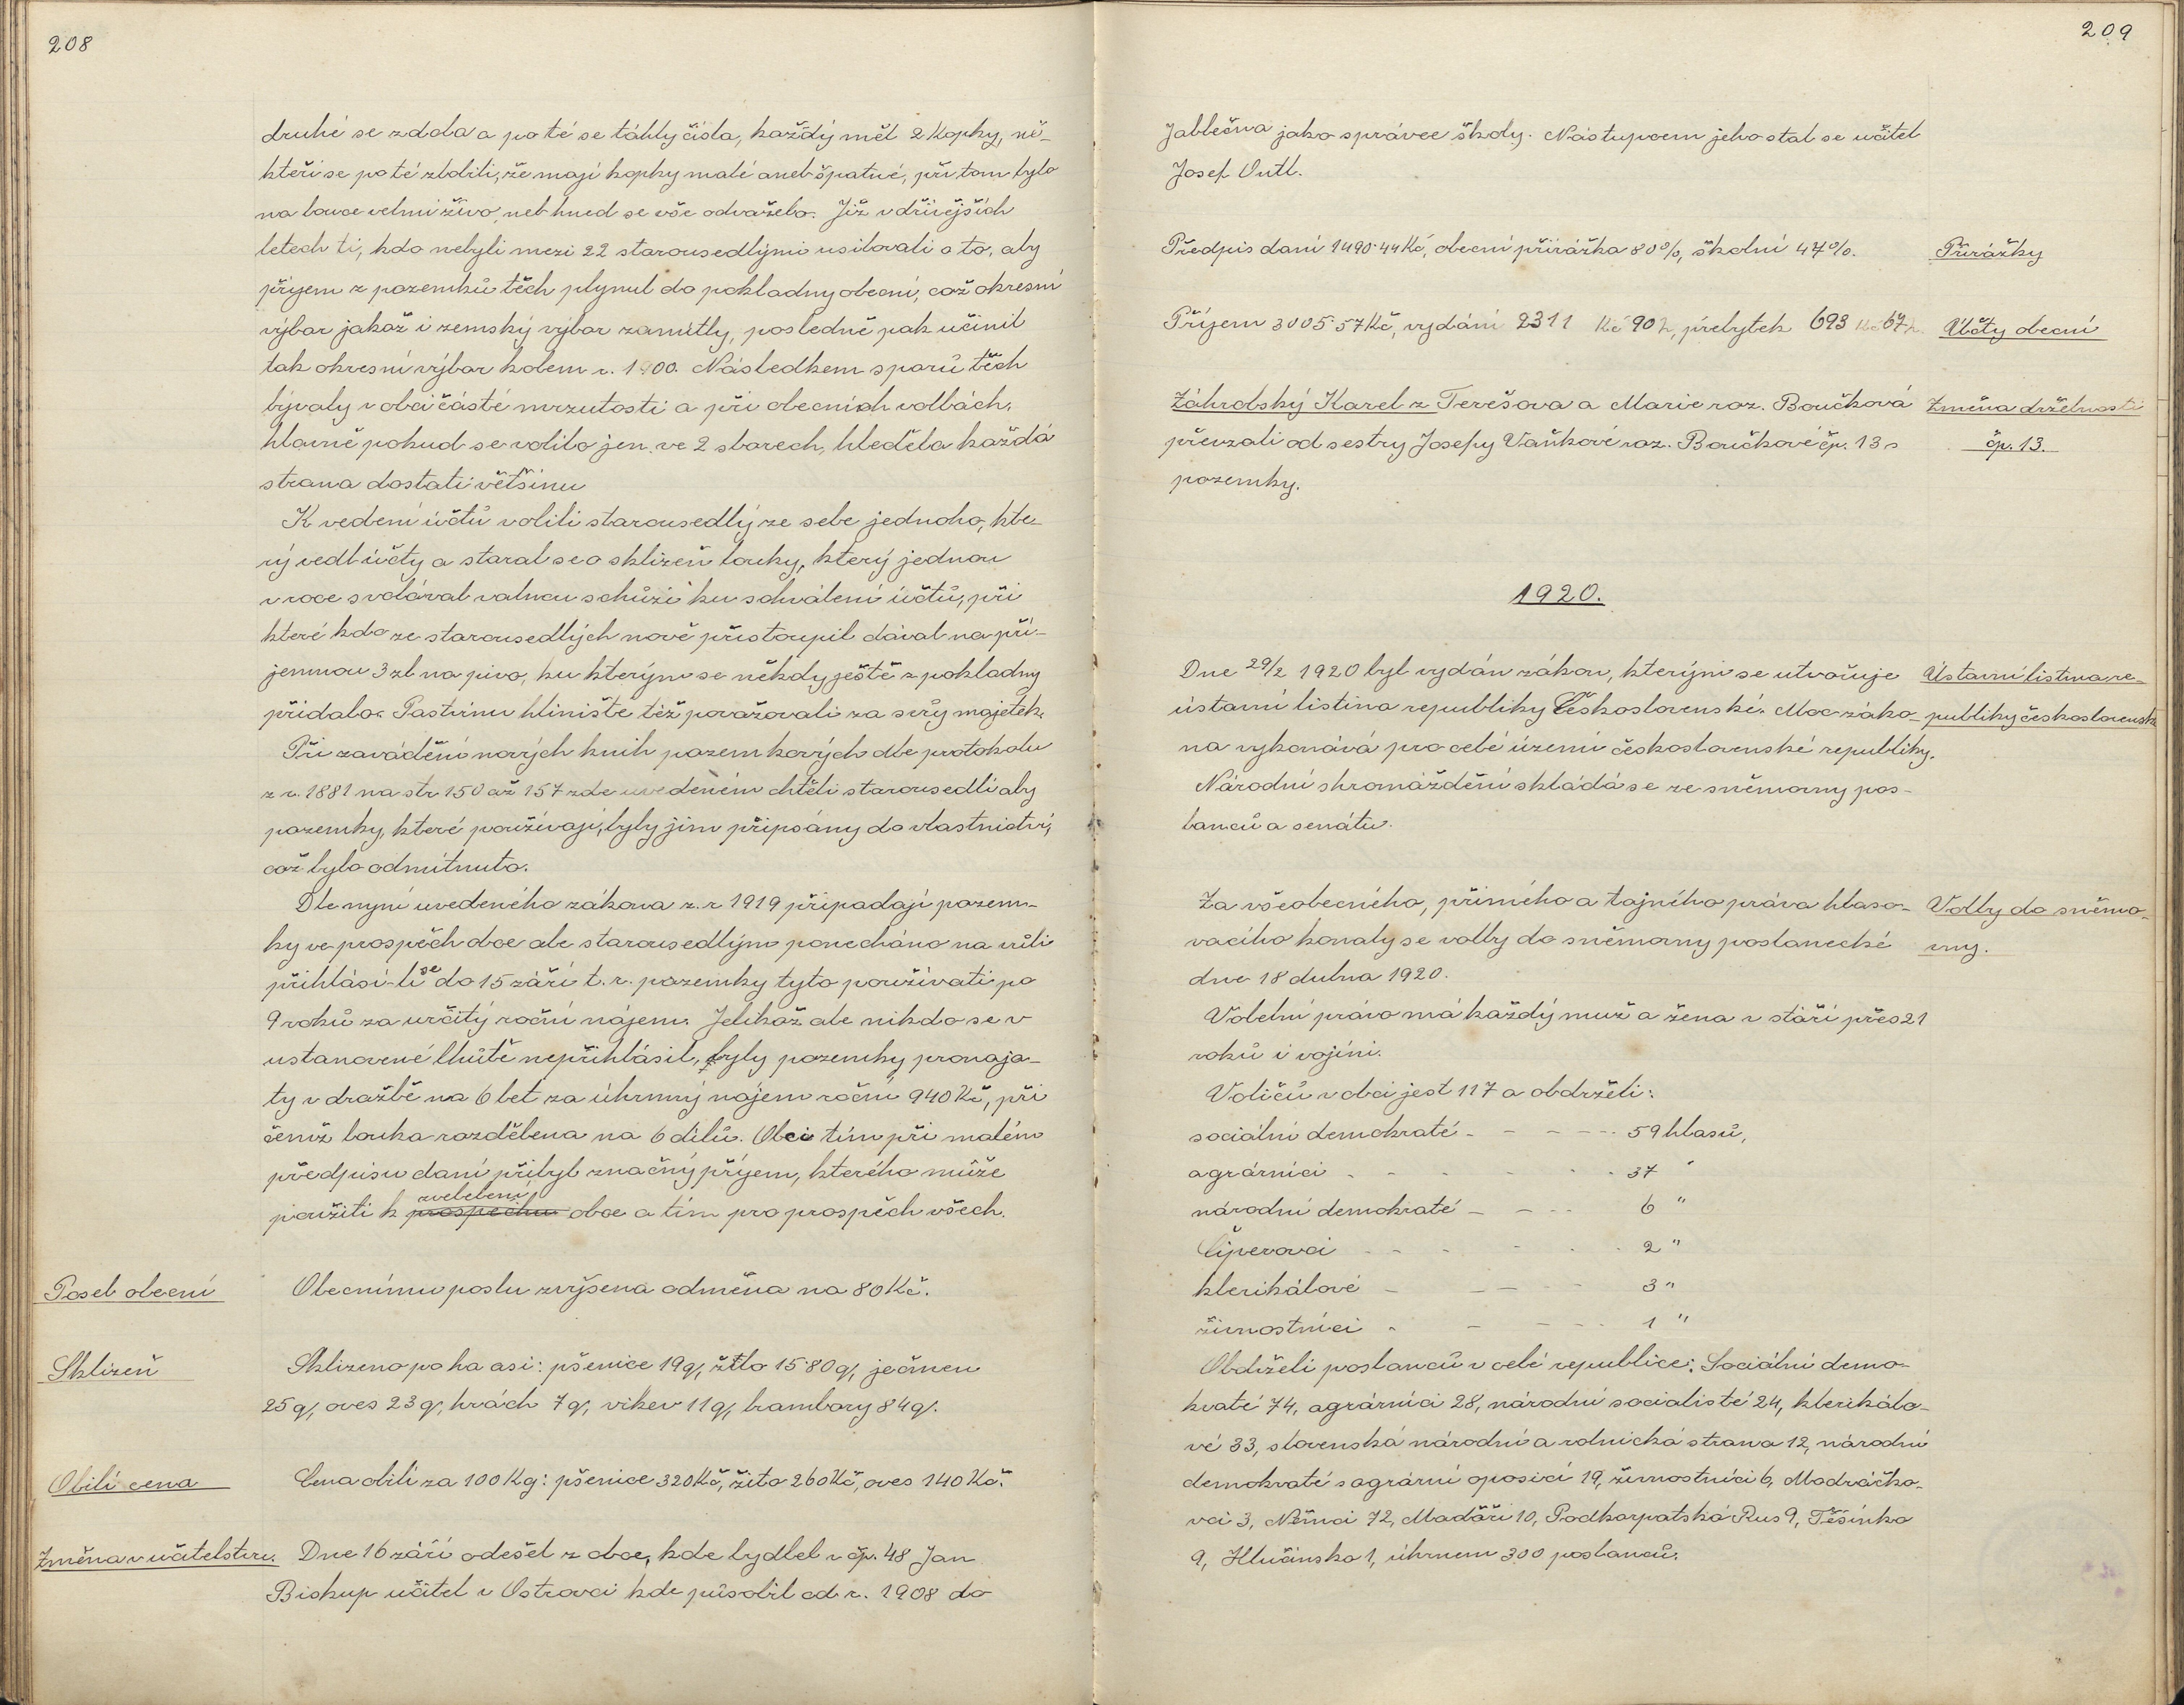 208
druhé se zdola a po té se táhly čísla, každý měl 2 kopky, ně-
kteří se po té zlobili, že mají kopky malé aneb špatné, při tom bylo
na louce velmi živo, neb hned se vše odváželo. Již v dřívějších
letech ti, kdo nebyli mezi 22 starousedlými usilovali o to, aby
příjem z pozemků těch plynul do pokladny obecní, což okresní
výbor jakož i zemský výbor zamítly, posledně pak učinil
tak okresní výbor kolem r. 1900. Následkem sporů těch
bývaly v obci časté mrzutosti a při obecních volbách,
hlavně pokud se volilo jen ve 2 sborech, hleděla každá
strana dostati většinu
K vedení účtů volili starousedlý ze sebe jednoho, kte-
rý vedl účty a staral se o sklizeň louky, který jednou
v roce svolával valnou schůzi ku schválení účtů, při
které kdo ze starousedlých nově přistoupil dával na pří-
jemnou 3 zl na pivo, ku kterým se někdy ještě z pokladny
přidalo. Pastvinu hliniště též považovali za svůj majetek.
Při zavádění nových knih pozemkových dle protokolu
z r. 1881 na str 150 až 157 zde uvedeném chtěli starousedlí aby
pozemky, které používají, byly jim připsány do vlastnictví,
což bylo odmítnuto.
Dle nyní uvedeného zákona z. r 1919 připadají pozem-
ky ve prospěch obce ale starousedlým ponecháno na vůli
přihlásí-li se do 15 září t. r. pozemky tyto používati po
9 roků za určitý roční nájem. Jelikož ale nikdo se v
ustanovené lhůtě nepřihlásil, byly pozemky pronaja-
ty v dražbě na 6 let za úhrnný nájem roční 940 Kč, při
čemž louka rozdělena na 6 dílů. Obci tím při malém
předpisu daní přibyl značný příjem, kterého může
zvelebení
použíti k prospěchu obce a tím pro prospěch všech.
Posel obecní
Obecnímu poslu zvýšena odměna na 80 Kč.
Sklizeň
Sklizeno po ha asi: pšenice 19 q, žito 15·80 q, ječmen
25 q, oves 23 q, hrách 7 q, vikev 11 q, brambory 84 q.
Obilí cena
Cena obilí za 100 Kg: pšenice 320 Kč, žito 260 Kč, oves 140 Kč.
Změna v učitelstvu.
Dne 16 září odešel z obce, kde bydlel v čp. 48 Jan
Biskup učitel v Ostrovci kde působil od r. 1908 do
209
Jablečna jako správce školy. Nástupcem jeho stal se učitel
Josef Outl.
Předpis daní 1490·44 Kč, obecní přirážka 80%, školní 47%.
Přirážky
Příjem 3005·57 Kč, vydání 2311 Kč 90 h, přebytek 693 Kč 67 h
Účty obecní
Záhrobský Karel z Terešova a Marie roz. Boučková
Změna držebnosti
převzali od sestry Josefy Vaňkové roz. Boučkové čp. 13 s
čp. 13.
pozemky.
1920.
Dne 29/2 1920 byl vydán zákon, kterým se utvořuje
Ústavní listina re-
ústavní listina republiky Československé. Moc záko-
publiky československ
na vykonává pro celé území československé republiky.
Národní shromáždění skládá se ze sněmovny pos-
lanců a senátu.
Za všeobecného, přímého a tajného práva hlaso-
Volby do sněmo-
vacího konaly se volby do sněmovny poslanecké
vny.
dne 18 dubna 1920.
Volební právo má každý muž a žena v stáří přes 21
roků i vojíni.
Voličů v obci jest 117 a obdrželi:
sociální demokraté - - - - - 59 hlasů,
agrárníci - - - - - - 37 "
národní demokraté - - - - 6 "
Čiperovci - - - - - - 2 "
klerikálové - - - - 3 "
živnostníci - - - - - 1 "
Obdrželi poslanců v celé republice: Sociální demo-
kraté 74, agrárníci 28, národní socialisté 24, klerikálo-
vé 33, slovenská národní a rolnická strana 12, národní
demokraté s agrární oposicí 19, živnostníci 6, Modráčko-
vci 3, Němci 72, Madáři 10, Podkarpatská Rus 9, Těšínko
9, Hlučínsko 1, úhrnem 300 poslanců.